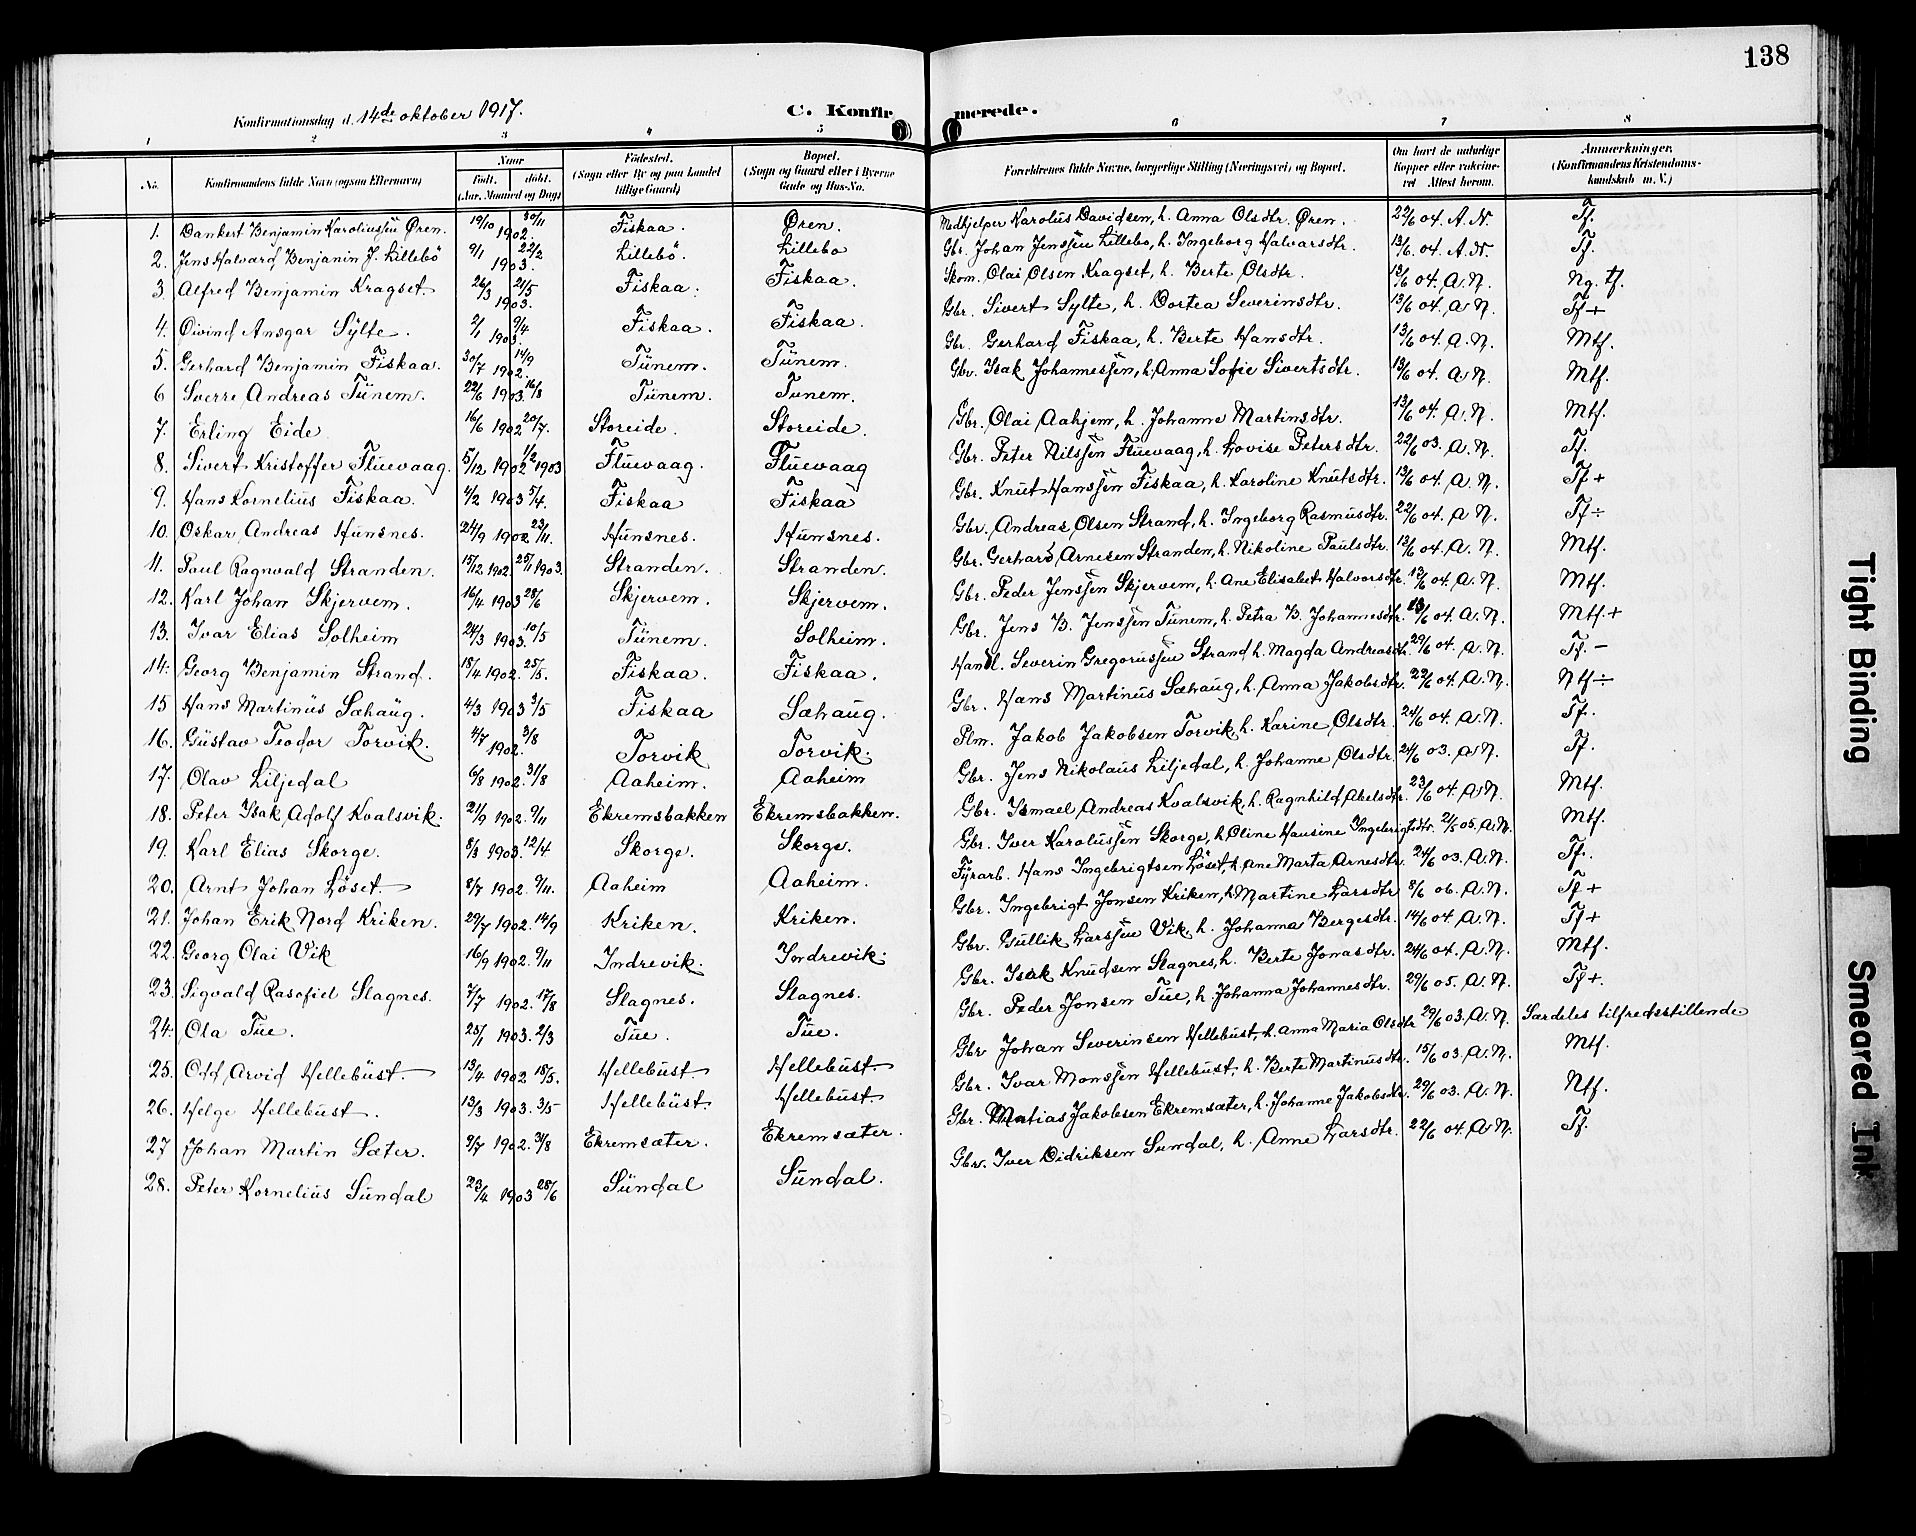 138
Konfirmationsdag d. 14de oktober 1917.
C. Konfirmerede.
1 2 3 4 5 6 7 8
No. Konfirmandens fulde Navn (ogsaa Efternavn) Naar Født. døbt. (Aar, Maaned og Dag) Fødested. (Sogn eller By og paa Landet tillige Gaard) Bopæl. (Sogn og Gaard eller i Byerne Gade og Hus-No. Forældrenes fulde Navne, borgerlige Stilling (Næringsvei) og Bopæl. Om havt de naturlige Kopper eller vakcineret Attest herom. Anmærkninger. (Konfirmandens Kristendomskundskab m. V.)
1. Dankert Benjamin Karoliussen Øren. 19/10 1902 30/11 Fiskaa. Øren. Medhjelper Karolus Davidsen, h. Anna Olsdtr. Øren. 22/6 04. A.N. Tf.
2. Jens Halvard Benjamin J. Lillebö 9/1 1903. 22/2 Lillebö. Lillebo Gbr. Johan Jenssen Lillebo, h. Ingeborg Halvarsdtr. 13/6. 04. A.N. Tf.
3. Alfred Benjamin Kragset. 26/3 1903. 21/5 Fiskaa. Fiskaa. Skom. Olai Olsen Kragset, h. Berte Olsdtr. 13/6 04. A.N. Ng. tf.
4. Öivind Ansgar Sylte. 2/1 1903. 9/4 Fiskaa. Fiskaa. Gbr. Sivert Sylte, h. Dortea Severinsdtr. 13/6 04. A.N. Tf +
5. Gerhard Benjamin Fiskaa. 30/7 1902. 14/9 Tunem. Tunem. Gbr. Gerhard Fiskaa, h. Berte Hansdtr. 13/6 04. A.N. Mtf.
6 Sverre Andreas Tunem. 22/6 1903. 16/8 Tunem. Tunem. Gbr. Isak Johannessen, h. Anna Sofie Sivertsdtr. 13/6 04. A.N. Mtf.
7. Erling Eide 16/6 1902 20/7. Storeide. Storeide. Gbr. Olai Aahjem, h. Johanna Martinsdtr. 13/6 04. A.N. Mtf.
8. Sivert Kristoffer Fluevaag. 5/12 1902 1/2 1903 Fluevaag. Fluevaag Gbr. Peter Nilssen Fluevaag, h. Lovise Petersdtr. 22/6 03. A.N. Tf.
9. Hans Kornelius Fiskaa. 4/2 1903 5/4. Fiskaa Fiskaa Gbr. Knut Hanssen Fiskaa, h. Karoline Knutsdtr. 13/6 04. A.N. Tf +
10. Oskar Andreas Hunsnes. 24/9 1902. 23/11. Hunsnes. Hunsnes. Gbr. Andreas Olsen Strand, h. Ingeborg Rasmusdtr. 22/6 04. A.N. Tf ÷
11. Paul Ragnvald Stranden. 15/12 1902. 25/11 1903. Stranden. Stranden. Gbr. Gerhard Arnesen Stranden, h. Nikoline Paulsdtr. 13/6 04. A.N. Mtf.
12. Karl Johan Skjervem. 16/4 1903 28/6 Skjervem. Skjervem. Gbr. Peder Jenssen Skjervem, h. Ane Elisabet Halvorsdtr. 13/6 04. A.N. Mtf.
13. Ivar Elias Solheim 24/3 1903. 10/5 Tunem. Solheim. Gbr. Jens B. Jenssen Tunem, h. Petra B. Johannesdtr. 13/6 04. A.N. Mtf. +
14. Georg Benjamin Strand. 18/4 1902. 25/5. Fiskaa. Fiskaa. Handl. Severin Gregoriussen Strand h. Magda Andreasdtr. 29/6 04. A.N. Tf. -
15 Hans Martinus Sæhaug. 4/3 1903 3/5 Fiskaa Sæhaug. Gbr. Hans Martinus Sæhaug, h. Anna Jakobsdtr. 22/6 04. A.N. Ntf ÷
16. Gustav Teodor Torvik. 4/7 1902. 3/8 Torvik Torvik. Plm. Jakob Jakobsen Torvik, h. Karine Olsdtr. 24/6 04. A.N. Tf.
17. Olav Liljedal 6/8 1902. 31/8 Aaheim. Aaheim Gbr. Jens Nikolaus Liljedal, h. Johanne Olsdtr. 24/6 03. A.N. Tf.
18. Peter Isak Adolf Kvalsvik. 21/9 1902. 9/11 Ekremsbakken Ekremsbakken. Gbr. Ismael Andreas Kvalsvik, h. Ragnhild Abelsdtr. 23/6 04. A.N. Mtf.
19. Karl Elias Skorge. 8/3 1903. 12/4 Skorge. Skorge. Gbr. Iver Karolussen Skorge, h. Oline Hansine Ingebrigtsdtr. 2/5 05. A.N. Mtf.
20. Arnt Johan Löset. 8/7 1902. 9/11. Aaheim Aaheim. Fyrarb. Hans Ingebrigtsen Löset, h. Ane Marta Arnesdtr. 24/6 03. A.N. Tf.
21. Johan Erik Nord Kriken. 29/7 1902. 14/9 Kriken. Kriken. Gbr. Ingebrigt Jonsen Kriken, h. Martine Larsdtr. 8/6 06. A.N. Tf +
22. Georg Olai Vik 16/9 1902. 9/11 Indrevik. Indrevik. Gbr. Gullik Larssen Vik, h. Johanna Bergesdtr. 14/6 04. A.N. Tf +
23. Sigvald Rasofiel Slagnes. 7/7 1902. 17/8 Slagnes. Slagnes. Gbr. Isak Knudsen Slagnes, h. Berte Jonasdtr. 24/6 04. A.N. Mtf.
24. Ola Tue. 25/1 1903. 2/3 Tue. Tue. Gbr. Peder Jonsen Tue, h. Johanna Johannesdtr. 29/6 05. A.N. Tf +.
25. Odd Arvid Hellebust. 13/4 1902 18/5. Hellebust. Hellebust. Gbr Johan Severinsen Hellebust, h. Anna Maria Olsdtr 29/6 03. A.N. Særdeles tilfredsstillende
26. Helge Hellebust. 13/3 1903. 3/5 Hellebust. Hellebust. Gbr. Ivar Monssen Hellebust, h. Berte Martinusdtr. 15/6 03. A.N. Mtf.
27 Johan Martin Sæter. 9/7 1902. 31/8 Ekremsæter. Ekremsæter. Gbr. Matias Jakobsen Ekremsæter, h. Johanne Jakobsdtr. 29/6 03. A.N. Ntf.
28. Peter Kornelius Sundal 23/4 1903 28/6 Sundal Sundal. Gbr. Iver Didriksen Sundal, h. Anne Larsdtr. 22/6 04. A.N. Tf.
Tight Binding
Smeared Ink